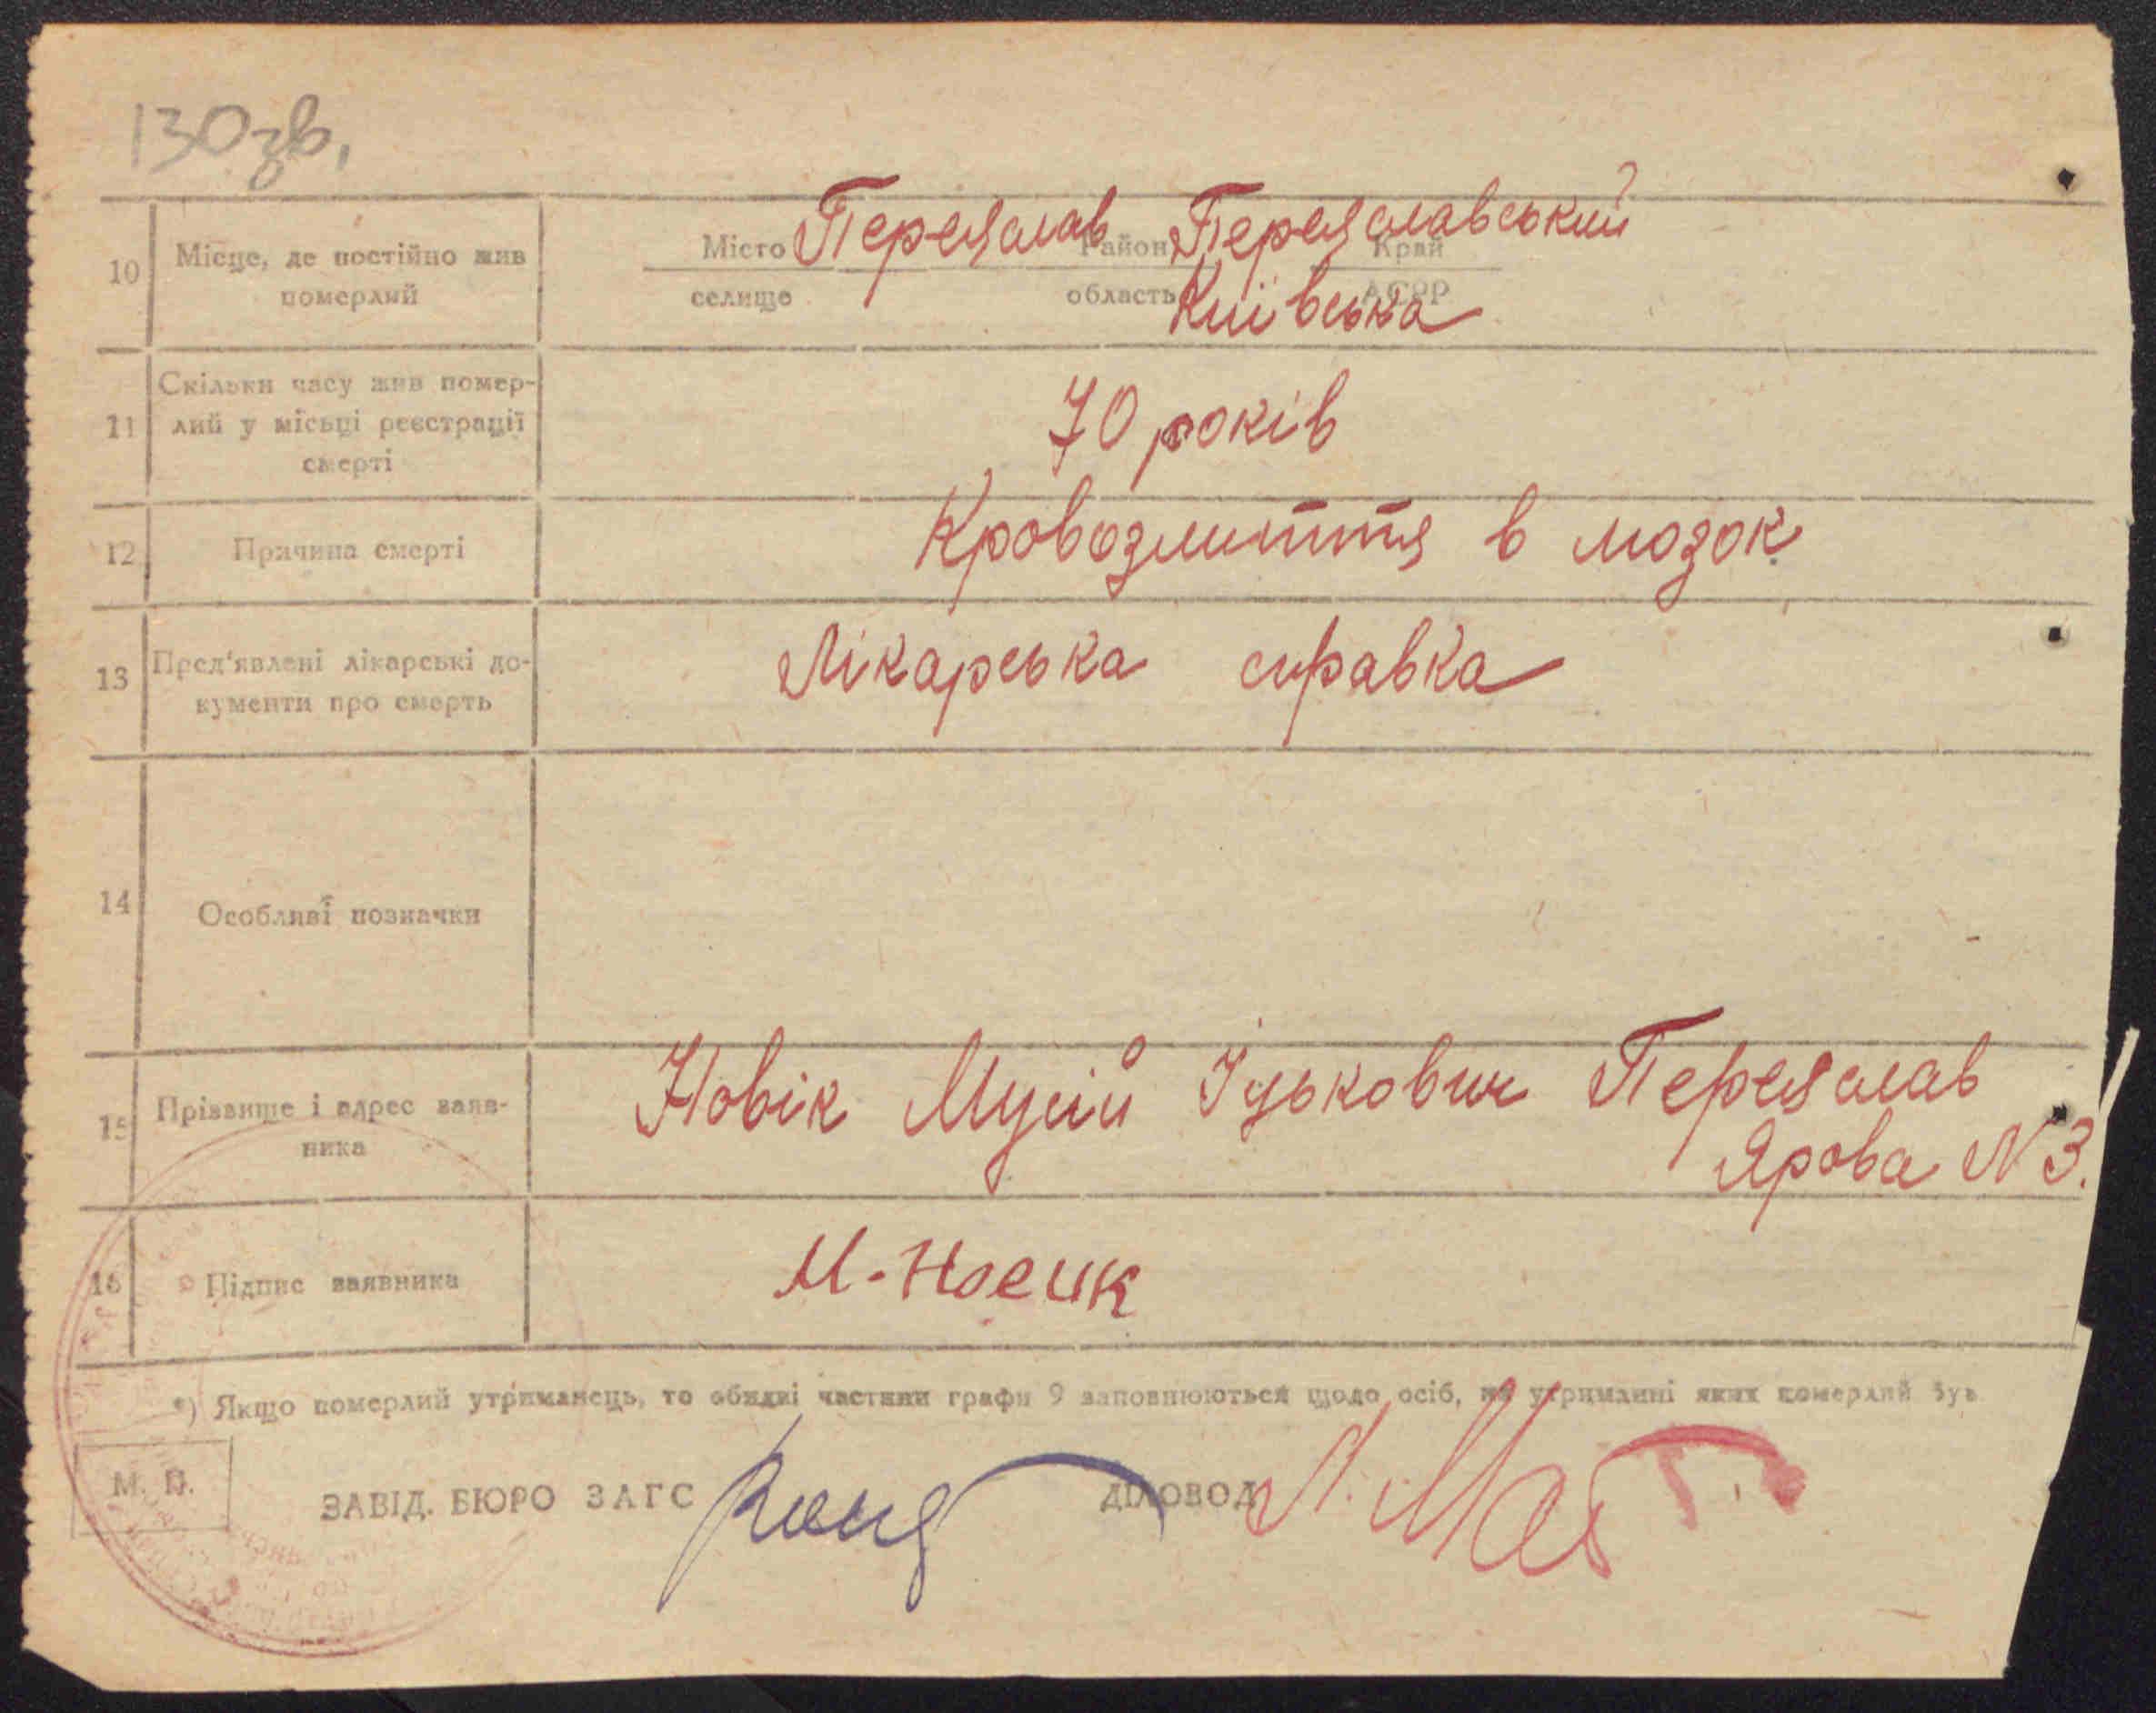 130зв.
10
Місце, де постійно жив
померлий
Місто Переяслав Район Переяславський Край
селище область Київська АСРР
11
Скільки часу жив помер-
лий у місьці реєстрації
смерті
70 років
12
Причина смерті
Кровозлиття в мозок
13
Пред'явлені лікарські до-
кументи про смерть
Лікарська справка
14
Особливі позначки
15
Прізвище і адрес заяв-
ника
Новік Мусій Іцькович Переяслав
Ярова N 3.
16
Підпис заявника
М. Новик
*) Якщо померлий утриманець, то обидві частини графи 9 заповнюються щодо осіб, на утриманні яких померлий був
М. П.
ЗАВІД. БЮРО ЗАГС
ДІЛОВОД